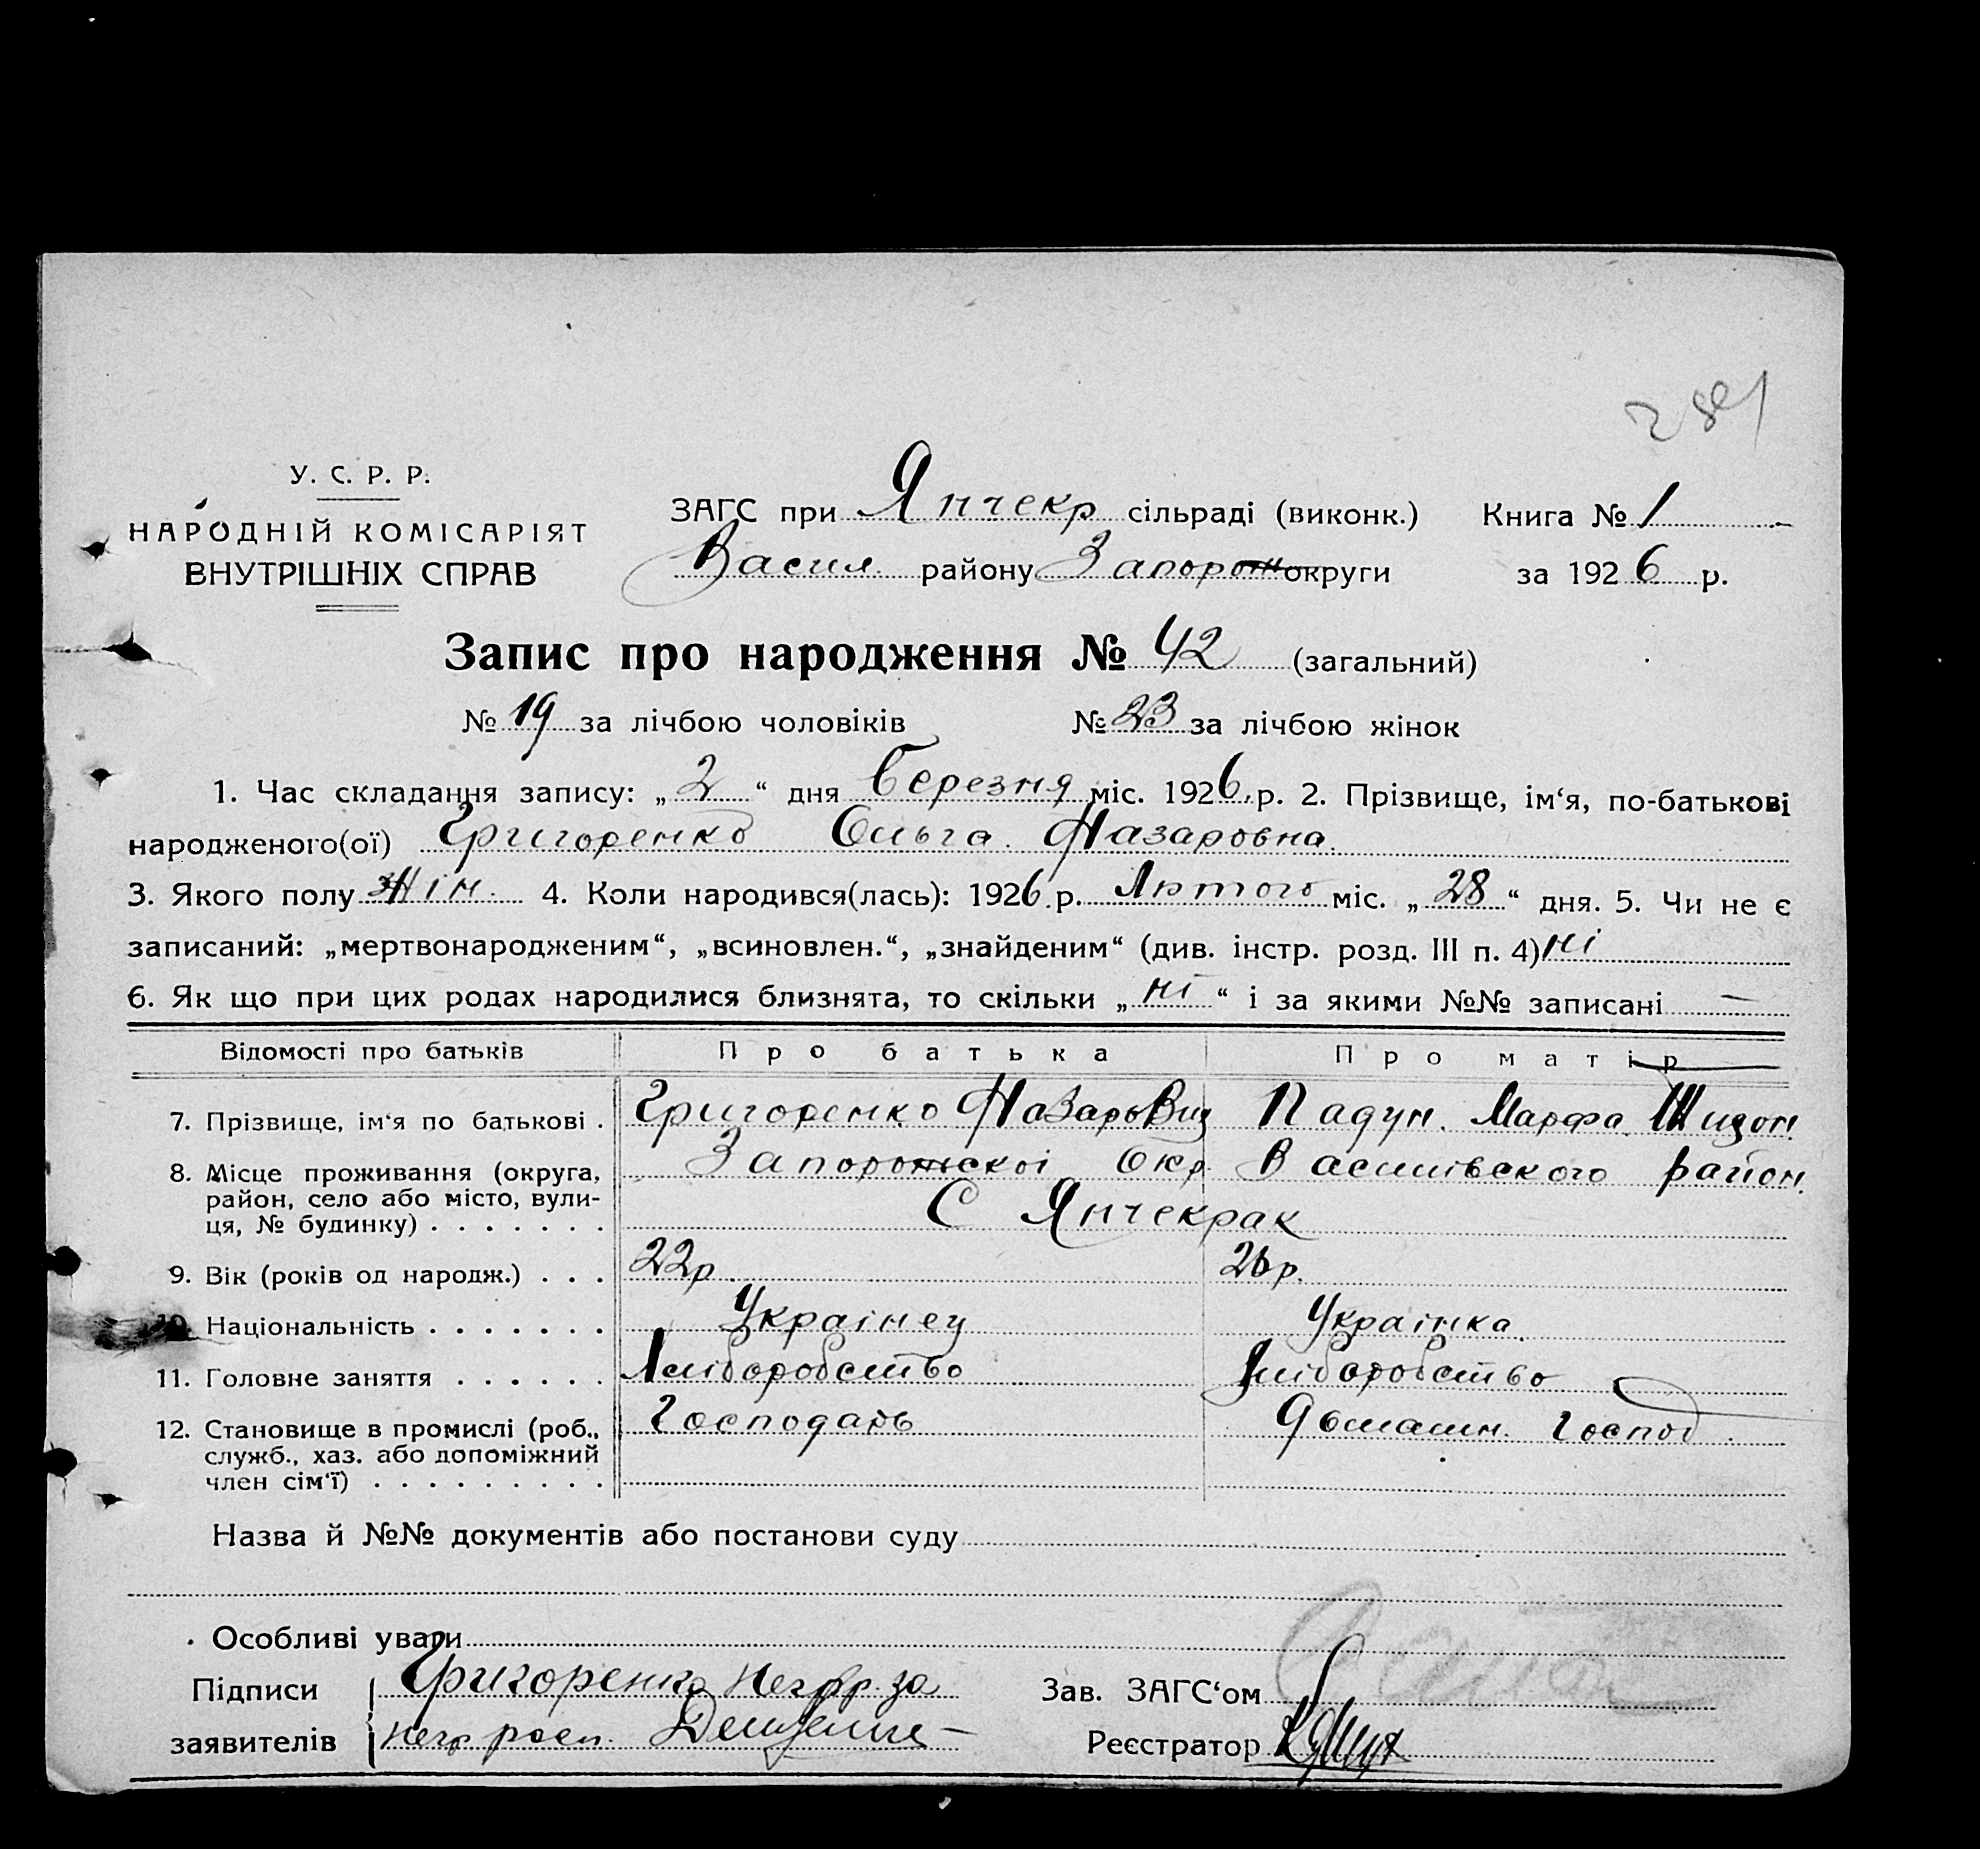 281
У. С. Р. Р.
НАРОДНІЙ КОМІСАРІЯТ
ВНУТРІШНІХ СПРАВ
ЗАГС при Янчекр сільраді (виконк.) Книга № 1
Васил. району Запорож округи за 1926 р.
Запис про народження № 42 (загальний)
№ 19 за лічбою чоловіків № 23 за лічбою жінок
1. Час складання запису: „2“ дня березня міс. 1926 р. 2. Прізвище, ім‘я, по-батькові
народженого(ої) Григоренко Ольга Назаровна
3. Якого полу Жін. 4. Коли народився(лась): 1926 р. Лютого міс. „28“ дня. 5. Чи не є
записаний: „мертвонародженим“, „всиновлен.“, „знайденим“ (див. інстр. розд. III п. 4) ні
6. Як що при цих родах народилися близнята, то скільки „ні“ і за якими №№ записані —
Відомості про батьків Про батька Про матір
7. Прізвище, ім‘я по батькові . Григоренко Назар Падун. Марфа
8. Місце проживання (округа, Запорожскої Окр Василівского район.
район, село або місто, вули-
ця, № будинку) . . . . . . . С Янчекрак
9. Вік (років од народж.) . . . 22р 26р.
10. Національність . . . . . . . Українец Українка
11. Головне заняття . . . . . . Хліборобство Хліборобство
12. Становище в промислі (роб., Господарь Домашн. Господ.
служб., хаз. або допоміжний
член сім‘ї) . . . . . . . . .
Назва й №№ документів або постанови суду
Особливі уваги
Підписи Григоренко Неграр за
заявителів негр росп.
Зав. ЗАГС‘ом
Реєстратор